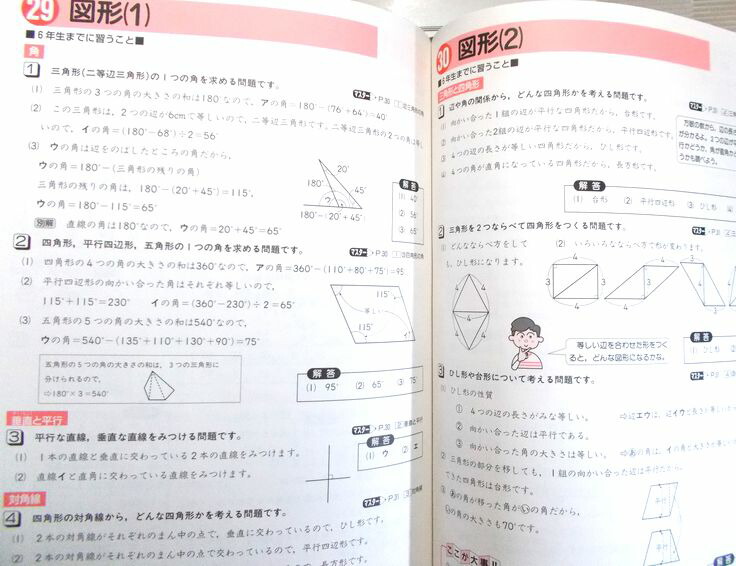 29 図形(1)
■6年生までに習うこと■
角
1 三角形(二等辺三角形)の1つの角を求める問題です。
(1) 三角形の3つの角の大きさの和は180°なので、アの角=180°-(76°+64°)=40°
(2) この三角形は、2つの辺が6cmで等しいので、二等辺三角形です。二等辺三角形の2つの角は等し
いので、イの角=(180°-68°)÷2=56°
(3) ウの角は辺をのばしたところの角だから、
ウの角=180°-(三角形の残りの角)
三角形の残りの角は、180°-(20°+45°)=115°、
ウの角=180°-115°=65°
別解 直線の角は180°なので、ウの角=20°+45°=65°
20°
180°
45°
180°-(20°+45°)
解答
(1) 40°
(2) 56°
(3) 65°
2 四角形，平行四辺形，五角形の1つの角を求める問題です。
マスター P.30
(1) 四角形の4つの角の大きさの和は360°なので、アの角=360°-(110°+80°+75°)=95°
(2) 平行四辺形の向かい合った角はそれぞれ等しいので、
115°+115°=230° イの角=(360°-230°)÷2=65°
(3) 五角形の5つの角の大きさの和は540°なので、
ウの角=540°-(135°+110°+130°+90°)=75°
115°
等しい
115°
五角形の5つの角の大きさの和は、3つの三角形に
分けられるので、
⇒180°×3=540°
解答
(1) 95° (2) 65° (3) 75°
垂直と平行
3 平行な直線，垂直な直線をみつける問題です。
マスター P.30 2 垂直と平行
(1) 1本の直線と垂直に交わっている2本の直線をみつけます。
(2) 直線イと直角に交わっている直線をみつけます。
解答
(1) ウ (2) エ
対角線
マスター P.31 3 対角線
4 四角形の対角線から，どんな四角形かを考える問題です。
(1) 2本の対角線がそれぞれのまん中の点で，垂直に交わっているので，ひし形です。
(2) 2本の対角線がそれぞれのまん中の点で交わっているので，平行四辺形です。
30 図形(2)
■6年生までに習うこと■
三角形と四角形
1 辺や角の関係から，どんな四角形かを考える問題です。
(1) 向かい合った1組の辺が平行な四角形だから，台形です。
(2) 向かい合った2組の辺が平行な四角形だから，平行四辺形です。
(3) 4つの辺の長さが等しい四角形だから，ひし形です。
(4) 4つの角が直角になっている四角形だから，長方形です。
解答
(1) 台形 (2) 平行四辺形 (3) ひし形 (4)
2 三角形を2つならべて四角形をつくる問題です。
(1) どんなならべ方をして
も，ひし形になります。
(2) いろいろなならべ方で形が変わります。
4
4
4
4
等しい辺を合わせた形をつく
ると，どんな図形になるかな。
解答
(1) ひし形
3 ひし形や台形について考える問題です。
(1) ひし形の性質
① 4つの辺の長さがみな等しい。
② 向かい合った辺は平行である。
③ 向かい合った角の大きさは等しい。
② 三角形の部分を移しても，1組の向かい合った辺は平行だから，
できた四角形は台形です。
③ あの角が移った角がいの角だから，
いの角の大きさも70°です。
平行
平行
ここが大事!!